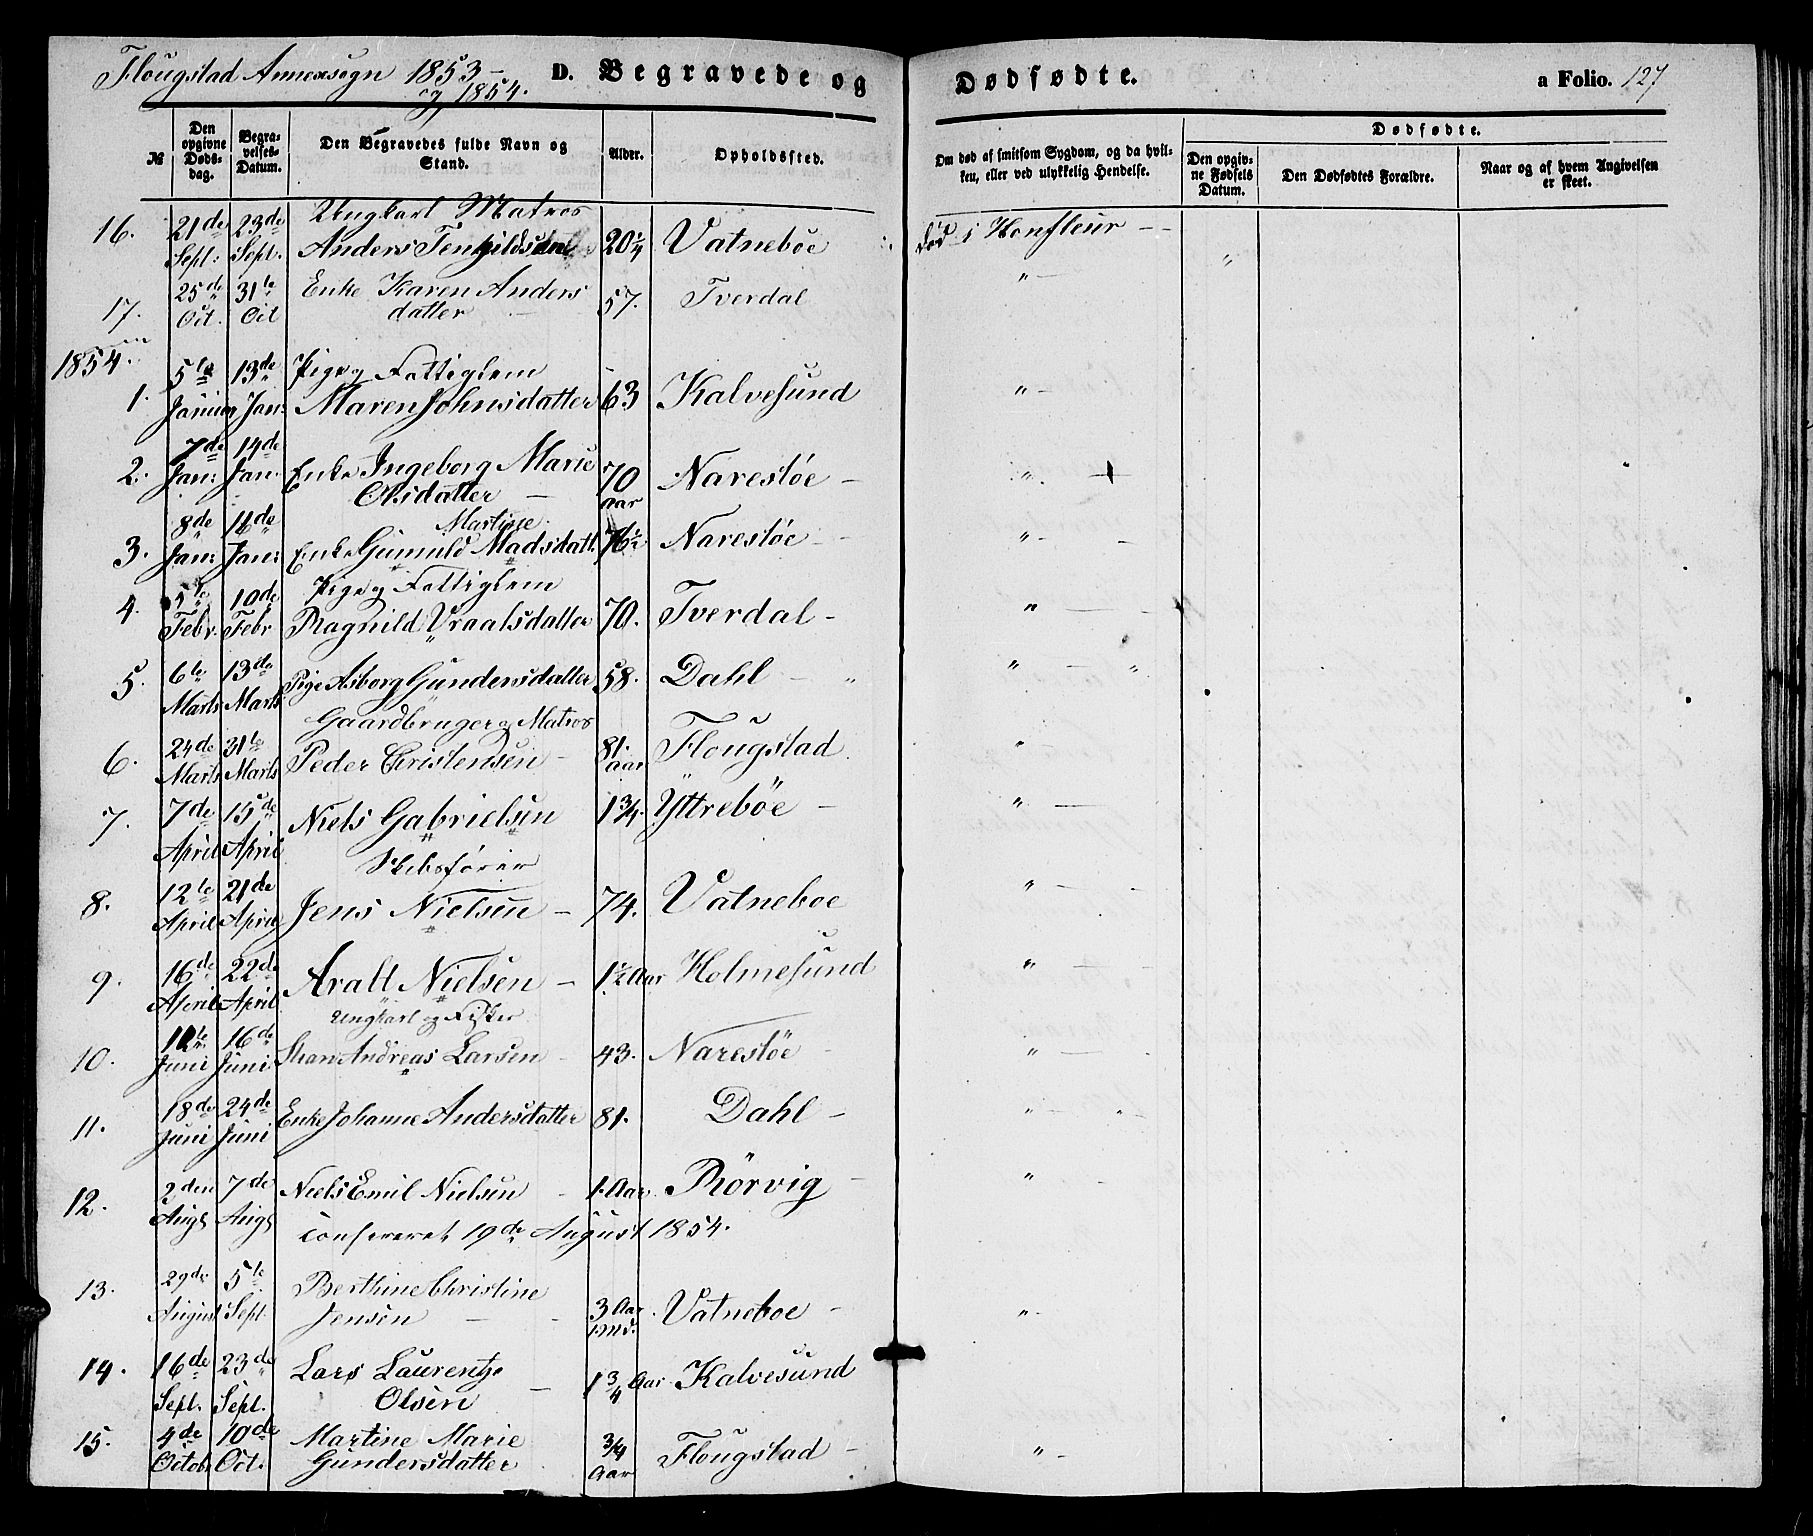 Flougstad Annexsogn 1853 –
og 1854.
D. Begravede og
Dødfødte.
a Folio. 127
№
Den opgivne Døds-dag.
Begra-velses-Datum.
Den Begravedes fulde Navn og Stand.
Alder.
Opholdssted.
Om død af smitsom Sygdom, og da hvil-ken, eller ved ulykkelig Hendelse.
Dødfødte.
Den opgiv-ne Fødsels Datum.
Den Dødfødtes Forældre.
Naar og af hvem Angivelsen er skeet.
Ungkarl Matros
16. 21de Sept: 23de Sept. Anders 20 1/4 Vatneböe død i Honfleur - -
17. 25de Oct. 31te Oct Enke Karen Anders
datter 57. Tverdal " -
1854.
Pige og Fattiglem
1. 5te Januar 13de Jan: Maren Johnsdatter 63 Kalvesund " -
2. 7de Jan: 14de Jan: Enke Ingeborg Marie
Olsdatter – 70 Aar Narestöe – "
Martine
3. 8de Jan: 16de Jan: Enke Gunnild Madsdatt. 76 1/2 Narestöe - - " -
Pige og Fattiglem
4. 5te Febr. 10de Febr Ragnild Vraalsdatter 70. Tverdal - "
5. 6te Marts 13de Marts Pige Asborg Gundersdatter 58. Dahl - " " – "
Gaardbruger og Matros
6. 24de Marts 31te Marts Peder Christensen – 81. Aar Flougstad " -
7. 7de April 15de April Niels Gabrielsen 1 3/4. Yttreböe – " –
Skibsfører
8. 12te April 21de April Jens Nielsen – 74. Vatneboe " –
9. 16de April 22de April Aralt Nielsen – 1 1/2 Aar Holmesund " –
Ungkarl og Fisker
10. Juni 16de Juni Andreas Larsen 43. Narestöe " –
11. 18de Juni 24de Juni Enke Johanne Andersdatter 81. Dahl – " – " –
12. 2den Augs 7de Augs Niels Emil Nielsen 1. Aar Rörvig – " -
Confereret 19de August 1854.
13. 29de August 5te Sept Berthine Christine
Jensen – 3 Aar. Vatneboe – " -
14. 16de Sept. 23de Sept. Lars Laurentz
Olsen – 1 3/4 Aar Kalvesund
15. 4de Octob. 10de Oct. Martine Marie
Gundersdatter 3/4 Aar Flougstad – " -